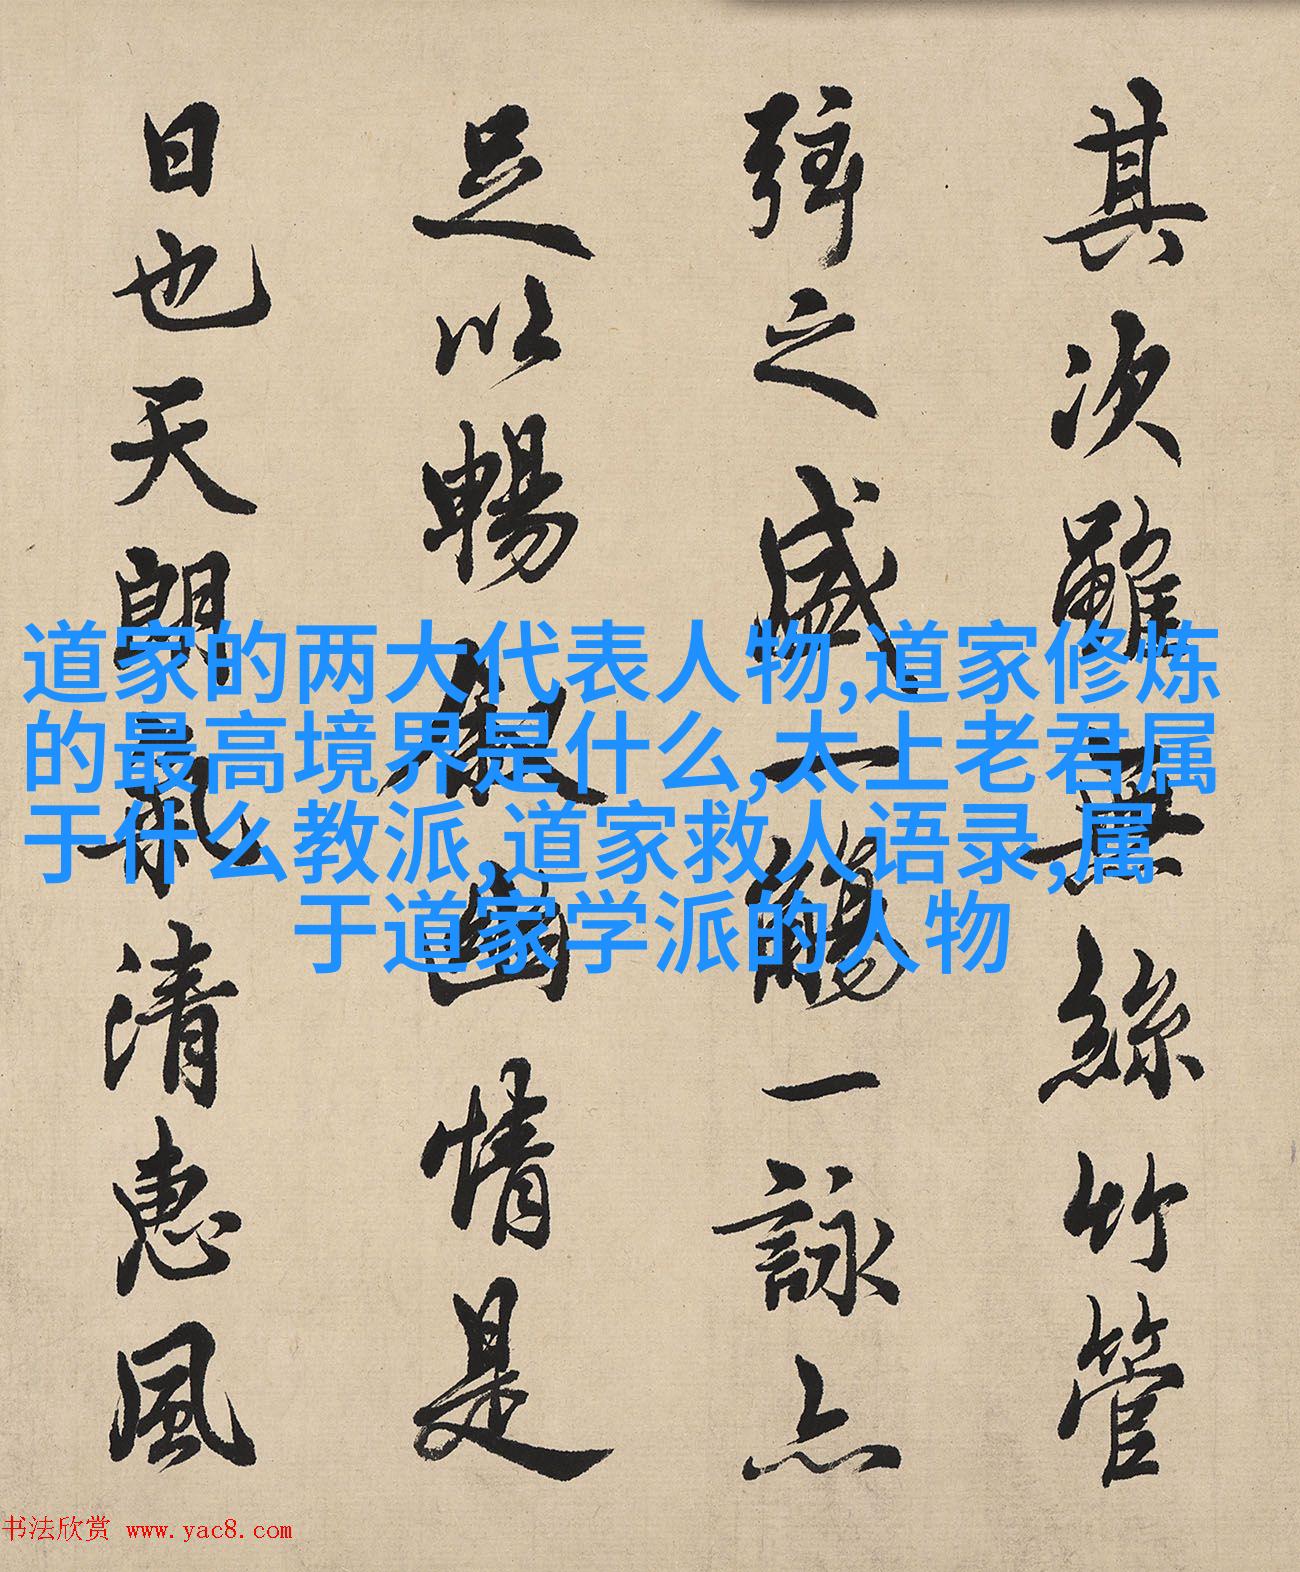 其次雖無絲竹管
弦之盛一觴一詠亦
足以暢敘幽情是
日也天朗氣清惠風
道家的两大代表人物,道家修炼
的最高境界是什么,太上老君属
于什么教派,道家救人语录,属
于道家学派的人物
书法欣赏 www.yac8.com